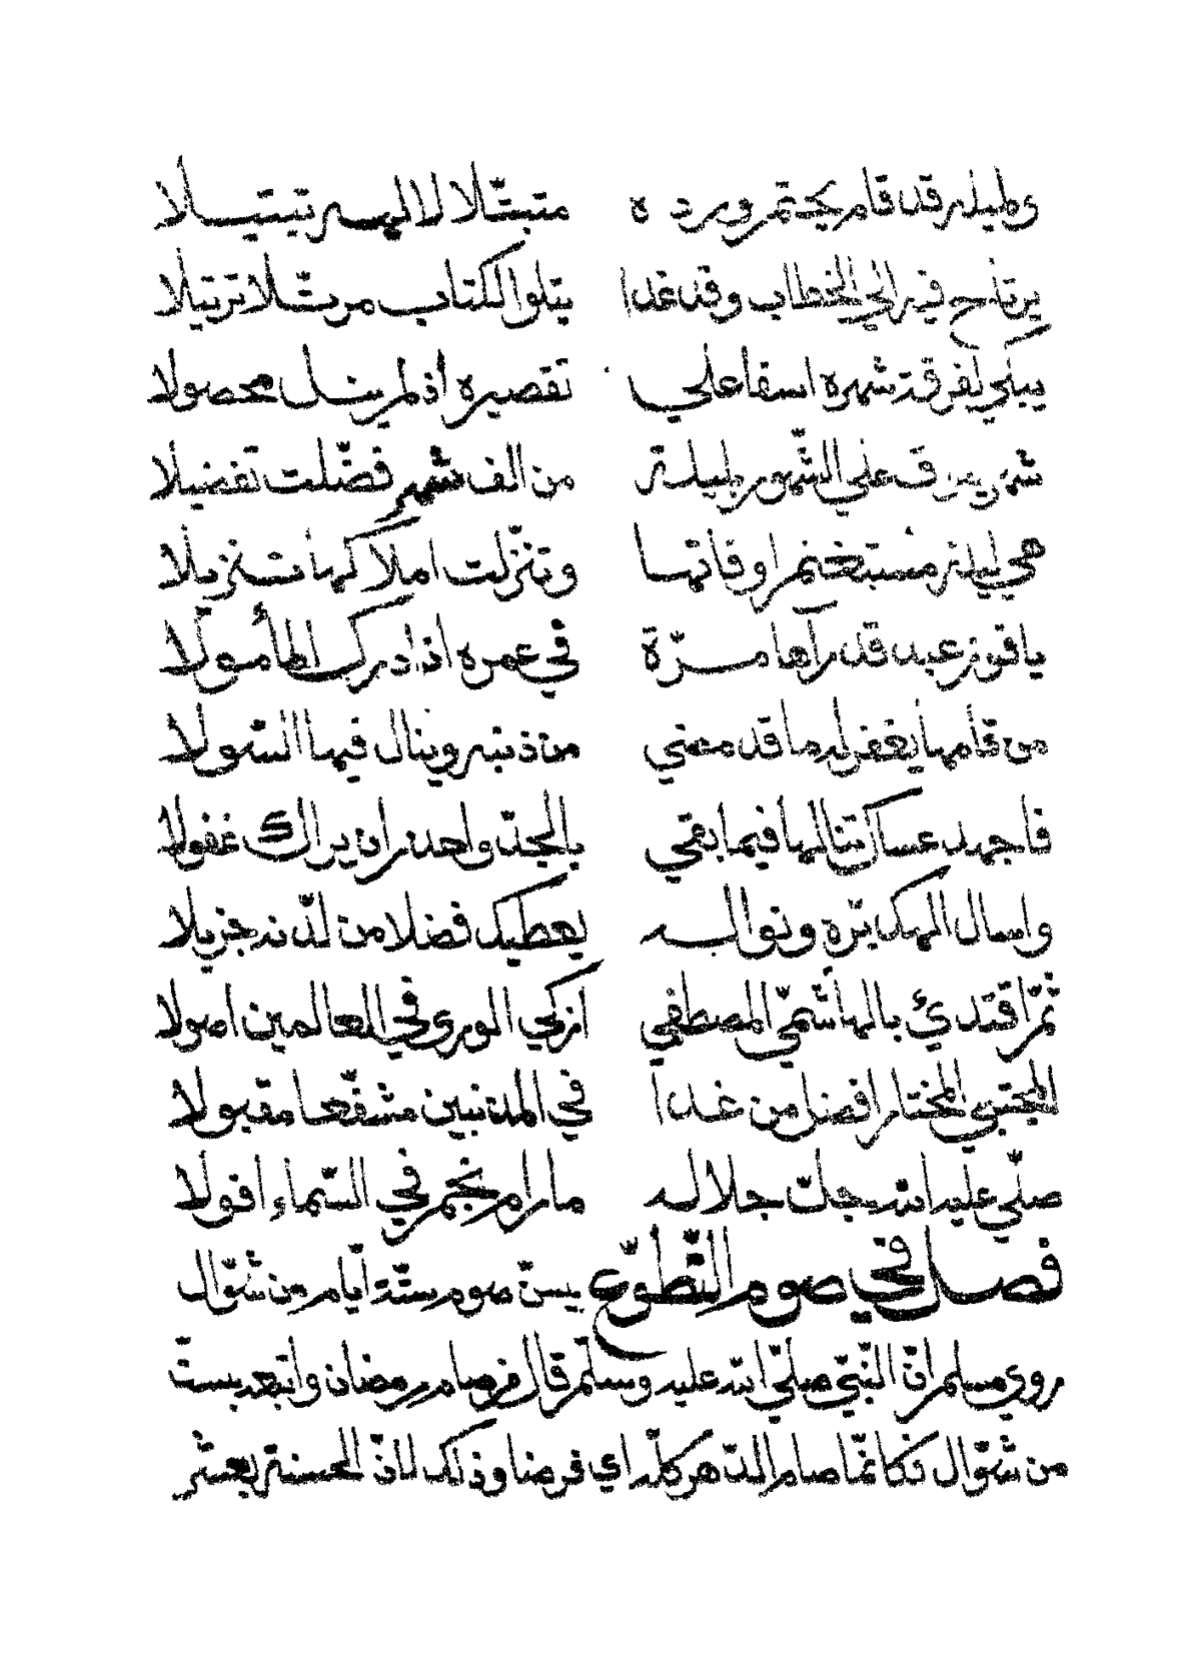 وليله قد قام يختم ورده متبتّلا لالهه تبتيلا
يرتاح فيه الي الخطاب وقد غدا يتلوا الكتاب مرتّلا ترتيلا
يبكي لفرقة شهره اسفا علي تقصيره اذ لم ينل محصولا
شهر يعرف علي الشّهور بليلة من الف شهر فضّلت تفضيلا
هي ليلة مستغنم اوقاتها وتنزّلت املاكها تنزيلا
يا فوز عبد قد رآها مرّة في عمره اذ ادرك المأمولا
من قامها يغفر له ما قد مضي من ذنبه وينال فيها السّولا
فاجهد عساك تنالها فيما بقي بالجدّ واحذر ان يراك غفولا
واسال الهك برّه ونواله يعطيك فضلا من لدّنه جزيلا
ثمّ اقتدي بالهاشميّ المصطفي ازكي الوري في العالمين اصولا
المجتبي المختار افضل من غدا في المذنبين مشفّعا مقبولا
صلّي عليه الله جلّ جلاله ما رام نجم في السّماء افولا
فصل في صوم التّطوّع يسنّ صوم ستّة ايّام من شوّال
روي مسلم انّ النّبيّ صلّي الله عليه وسلّم قال من صام رمضان واتبعه بستّ
من شوّال فكانّما صام الدّهر كلّه اي فرضا وذلك لانّ الحسنة بعشر